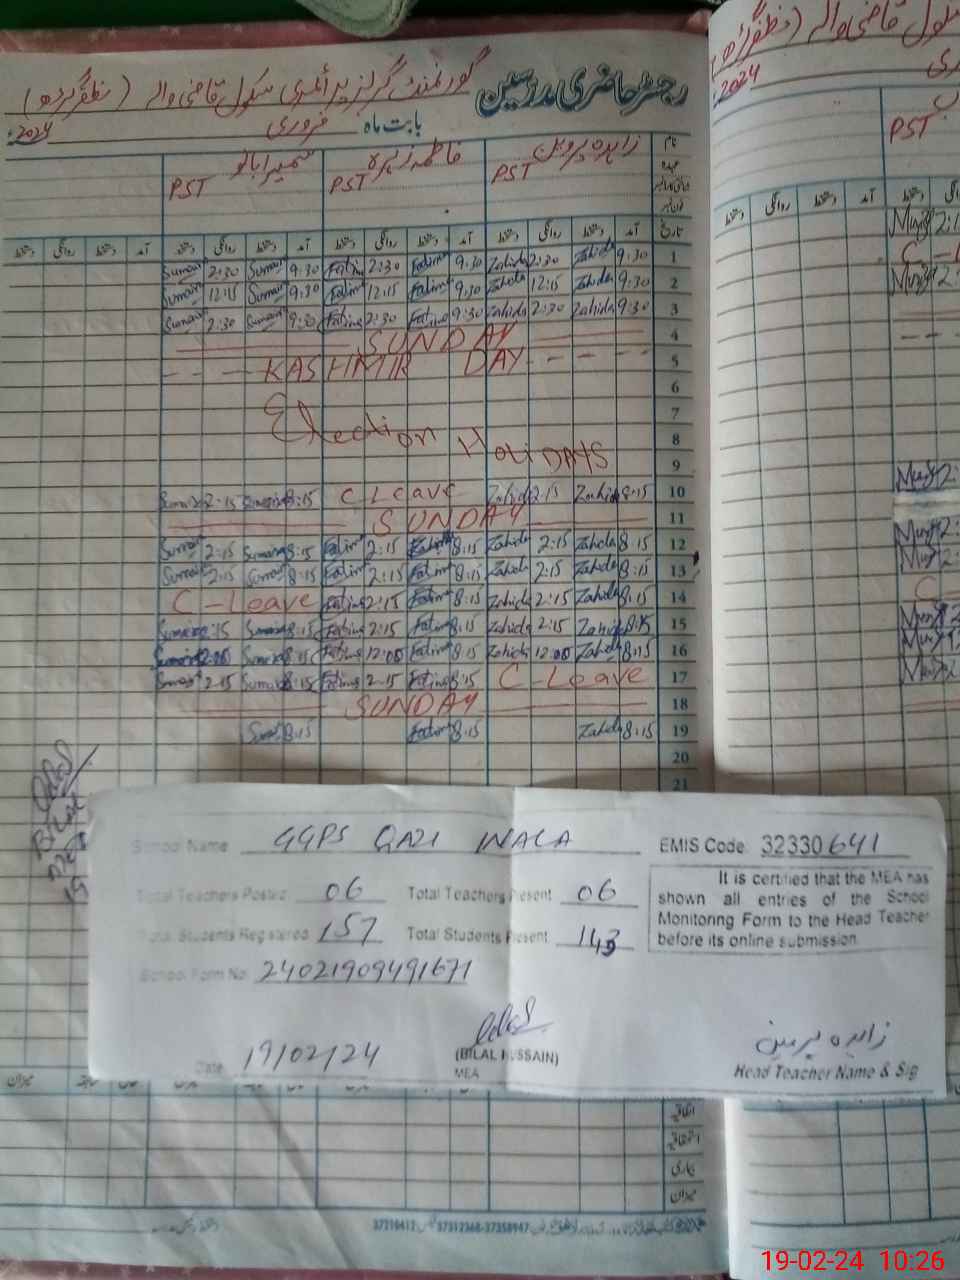 رجسٹر حاضری مدرسین گورنمنٹ گرلز پرائمری سکول قاضی والہ (مظفرگڑھ)
بابت ماہ فروری 2024
زاہدہ پروین فاطمہ زہرہ سمیرا بانو
PST PST PST
تاریخ آمد دستخط روانگی دستخط آمد دستخط روانگی دستخط آمد دستخط روانگی دستخط آمد دستخط روانگی دستخط
Sumaira 2:30 Sumaira 9:30 Fatima 2:30 Fatima 9:30 Zahida 2:30 Zahida 9:30 1
Sumaira 12:15 Sumaira 9:30 Fatima 12:15 Fatima 9:30 Zahida 12:15 Zahida 9:30 2
Sumaira 2:30 Sumaira 9:30 Fatima 2:30 Fatima 9:30 Zahida 2:30 Zahida 9:30 3
SUNDAY 4
KASHMIR DAY 5
6
Election Holidays 7
8
9
Sumaira 2:15 Sumaira 8:15 C Leave Zahida 2:15 Zahida 8:15 10
SUNDAY 11
Sumaira 2:15 Sumaira 8:15 Fatima 2:15 Fatima 8:15 Zahida 2:15 Zahida 8:15 12
Sumaira 2:15 Sumaira 8:15 Fatima 2:15 Fatima 8:15 Zahida 2:15 Zahida 8:15 13
C-Leave Fatima 2:15 Fatima 8:15 Zahida 2:15 Zahida 8:15 14
Sumaira 2:15 Sumaira 8:15 Fatima 2:15 Fatima 8:15 Zahida 2:15 Zahida 8:15 15
Sumaira 12:00 Sumaira 8:15 Fatima 12:00 Fatima 8:15 Zahida 12:00 Zahida 8:15 16
Sumaira 2:15 Sumaira 8:15 Fatima 2:15 Fatima 8:15 C-Leave 17
SUNDAY 18
8:15 Fatima 8:15 Zahida 8:15 19
20
21
Bilal
School Name GGPS QAZI WALA EMIS Code 32330641
Total Teachers Posted 06 Total Teachers Present 06
Total Students Registered 157 Total Students Present 143
School Form No 24021909491671
It is certified that the MEA has
shown all entries of the School
Monitoring Form to the Head Teacher
before its online submission
Date 19/02/24
(BILAL HUSSAIN)
MEA
زاہدہ پروین
Head Teacher Name & Sig
اتفاقیہ
استحقاقیہ
بیماری
میزان
2024
PST
19-02-24 10:26